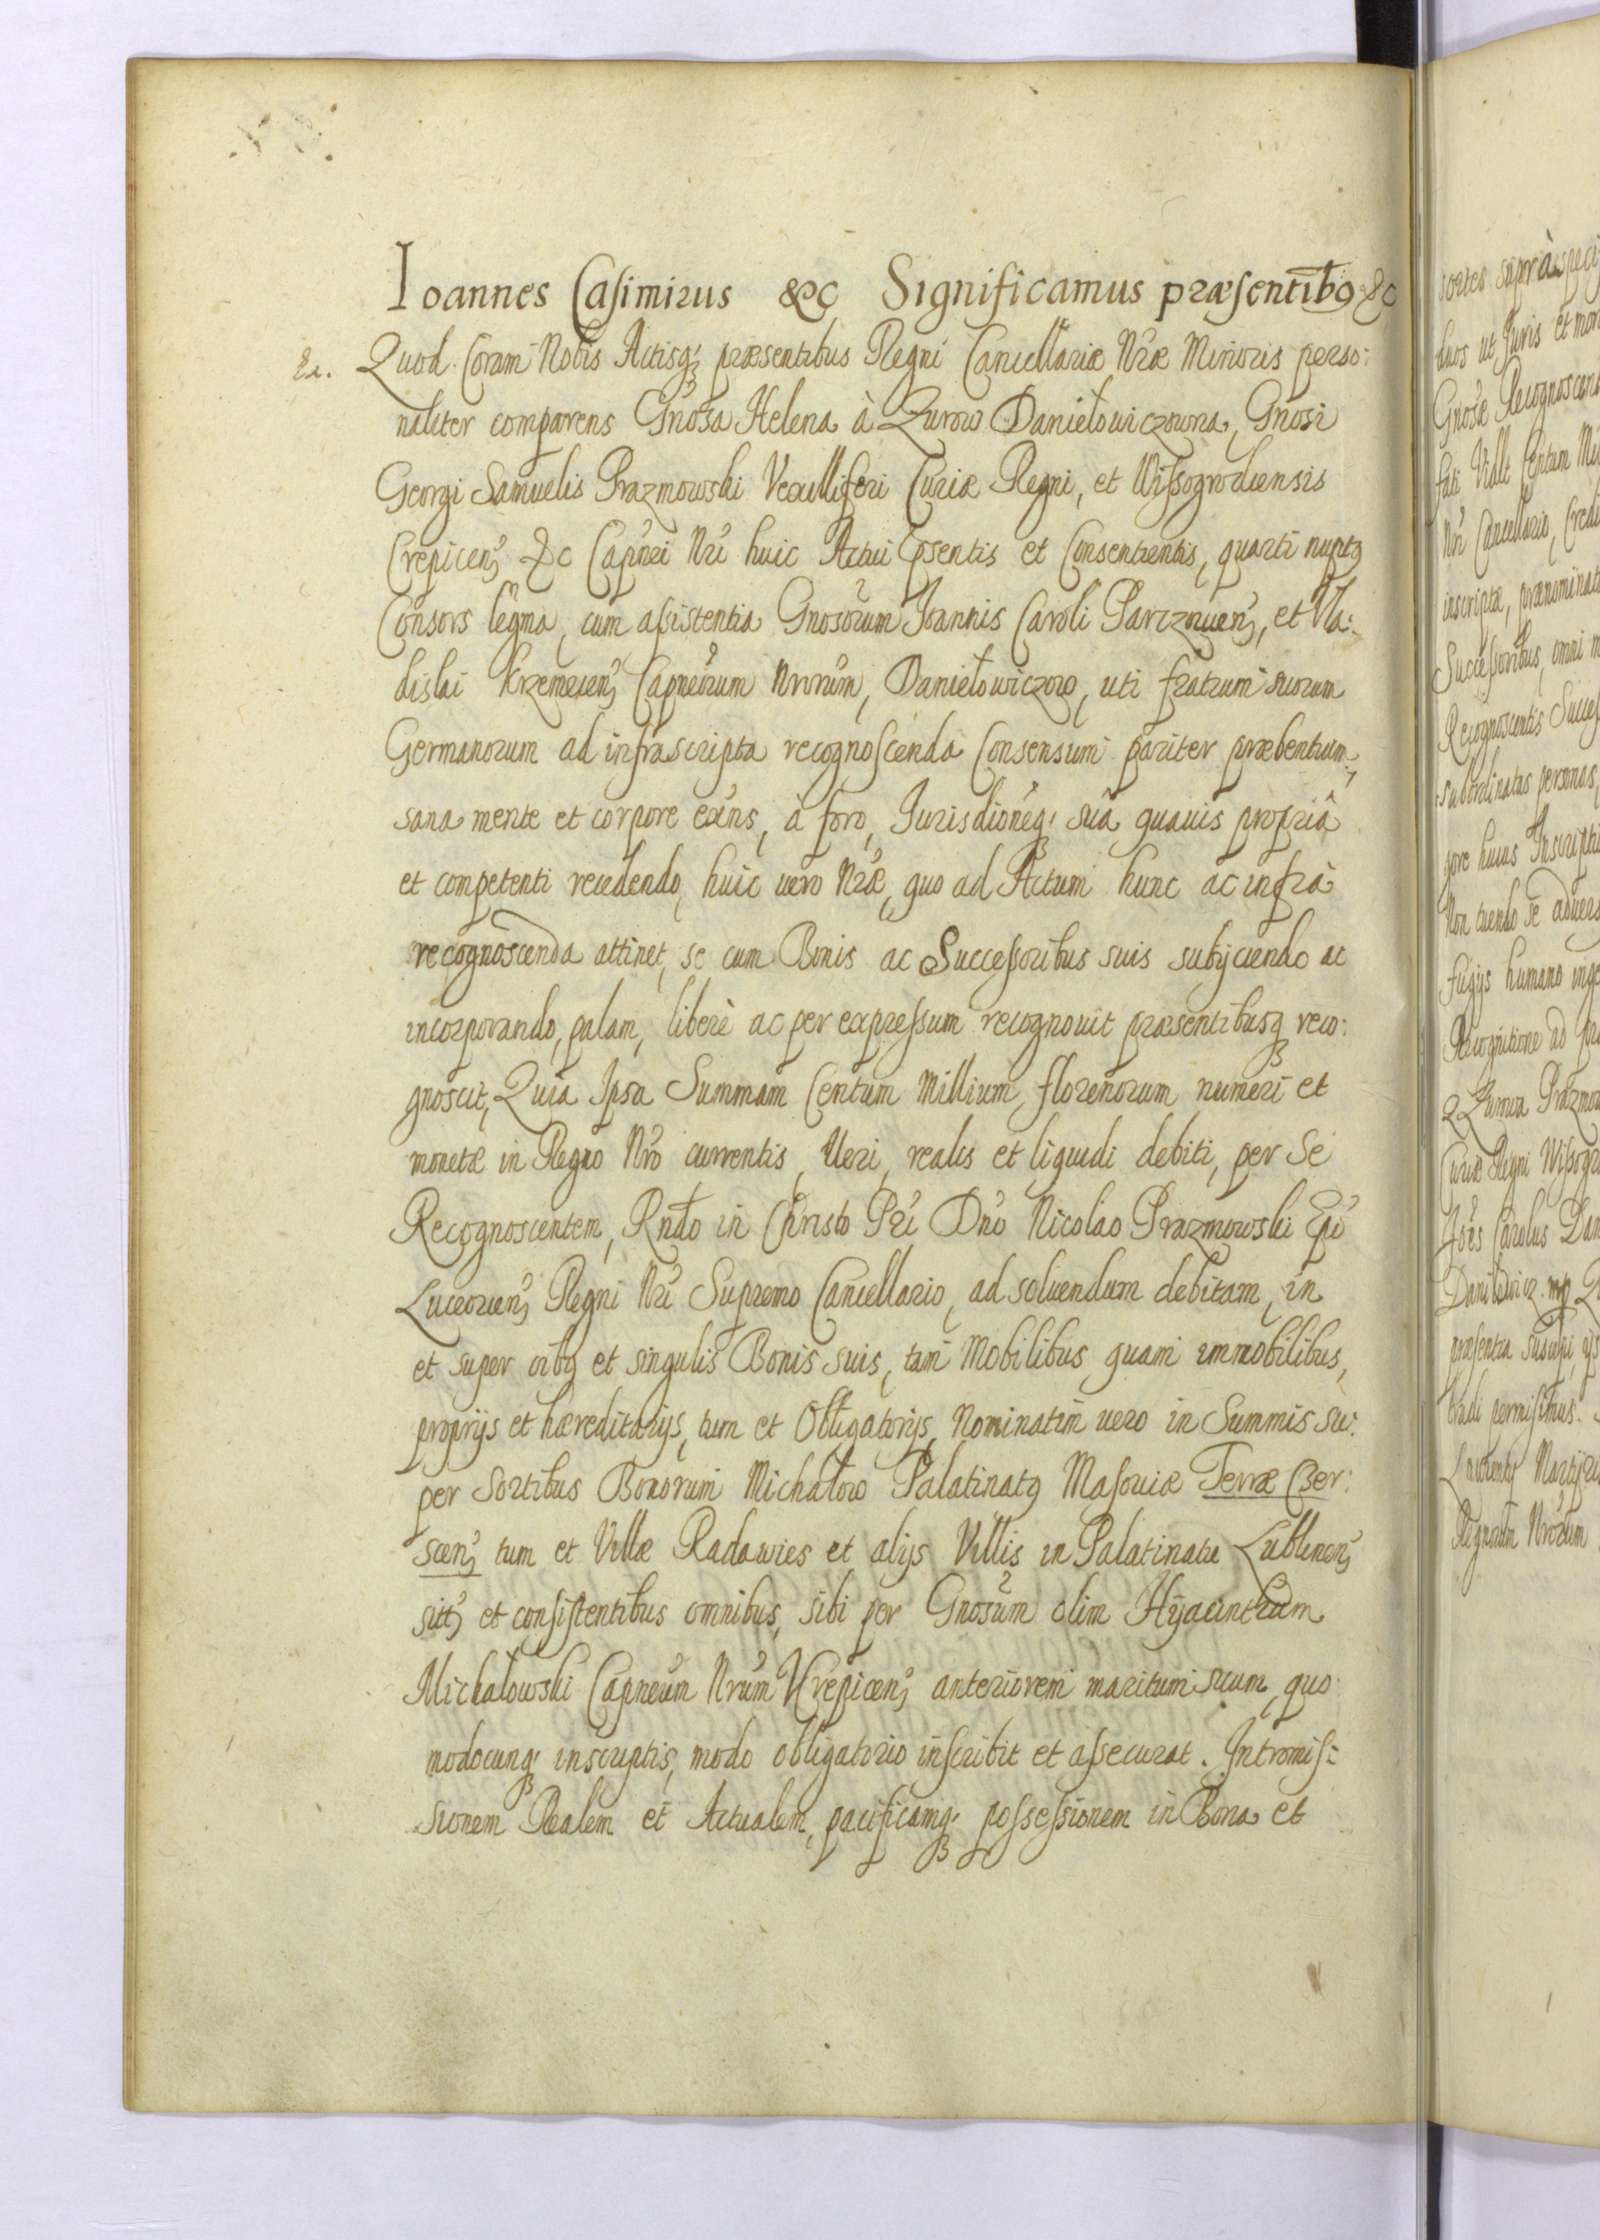 Ioannes Casimirus &c Significamus præsentibg &c
Quod Coram Nobis Actisq; præsentibus Regni Cancellariæ Nræ Minoris perso:
naliter comparens Gnosa Helena à Zurow Daniełowiczowna, Gnosi
Georgi Samuelis Prazmowski Vexilliferi Curiæ Regni, et Wissogrodiensis
Crepicen; &c Capnei Nri huic Actui psentis et Consentientis, quarti nuptg
Consors legma, cum assistentia Gnosorum Joannis Caroli Parczouien;, et Vla:
dislai Krzemecien; Capneorum Nrorum, Daniełowiczow, uti fratrum suorum
Germanorum ad infrascripta recognoscenda Consensum pariter præbentium,
sana mente et corpore exns, à foro, Jurisdioneq; suâ quauis propriâ
et competenti recedendo, huic uero Nræ, quo ad Actum hunc ac infrà
recognoscenda attinet, se cum Bonis ac Successoribus suis subijciendo ac
incorporando, palam, liberè ac per expressum recognouit præsentibusq reco:
gnoscit, Quia Ipsa Summam Centum Millium, florenorum numeri et
monetæ in Regno Nro currentis, Ueri, realis et liquidi debiti, per Se
Recognoscentem, Rndo in Christo Pri Dno Nicolao Prazmowski Epo
Luceorien; Regni Nri Supremo Cancellario, ad soluendum debitam, in
et super oibg et singulis Bonis suis, tam Mobilibus quam immobilibus,
proprijs et hæreditarijs, tum et Obligatorijs, Nominatim uero in Summis su:
per Sortibus Bonorum Michałow Palatinatg Masouiæ Terræ Cser:
scen; tum et Villæ Radawies et alijs Villis in Palatinatu Lublinen;
sitt; et consistentibus omnibus, sibi per Gnosum olim Hyacinthum
Michałowski Capneum Nrum Krepicen; anteriorem maritum suum, quo:
modocunq; inscriptis, modo obligatorio inscribit et assecurat. Intromis:
sionem Realem et Actualem, pacificamq; possessionem in Bona et
sortes suprà speci
Gnosæ Recognoscent
Nri Cancellario, Credi
inscriptæ, prænominat
Successoribus, omni m
Recognoscentis Succes
subordinatas personas,
gore huius Inscripti
Non tuendo se aduers
fugijs humano inge
Recognitione ad pr
Zurowa Prazmow
Curiæ Regni Wissogr
Joes Carolus Dan
Daniłowicz mp
præsentia suscepi, ijs
tradi permisimus.
Regnorum Nrorum